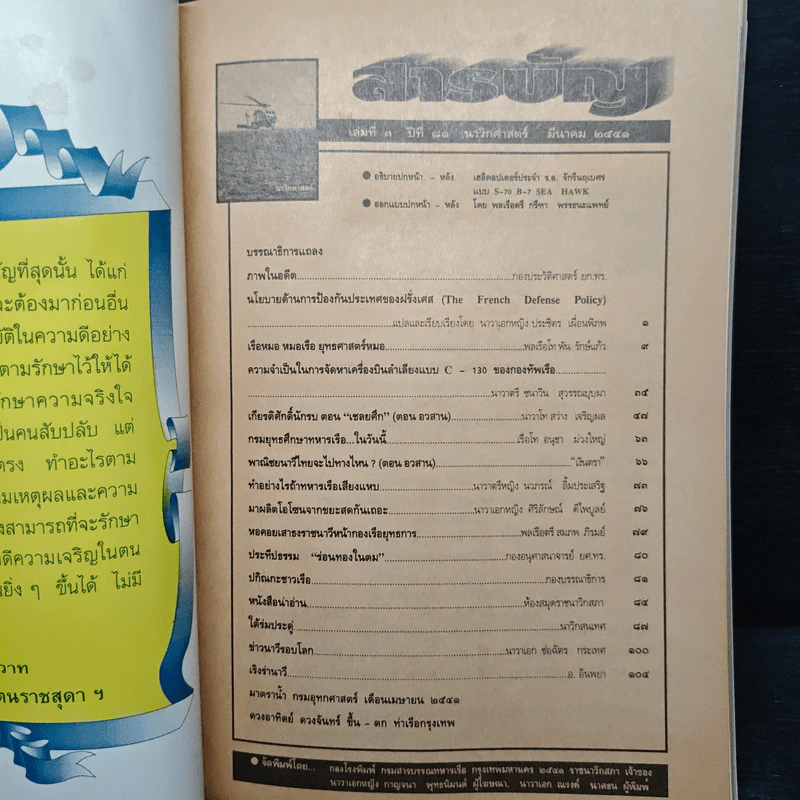 ัญที่สุดนั้น ได้แก่
จะต้องมาก่อนอื่น
บัติในความดีอย่าง
ตามรักษาไว้ให้ได้
กษาความจริงใจ
ป็นคนสับปลับ แต่
ตรง ทำอะไรตาม
มเหตุผลและความ
งสามารถที่จะรักษา
ดีความเจริญในตน
นยิ่ง ๆ ขึ้นได้ ไม่มี
วาท
ตนราชสุดา ฯ
สารบัญ
เล่มที่ ๓ ปีที่ ๘๑ นาวิกศาสตร์ มีนาคม ๒๕๔๑
นาวิกศาสตร์
● อธิบายปกหน้า - หลัง เฮลิคอปเตอร์ประจำ ร.ล. จักรีนฤเบศร
แบบ S-70 B-7 SEA HAWK
● ออกแบบปกหน้า - หลัง โดย พลเรือตรี กรีฑา พรรธนะแพทย์
บรรณาธิการแถลง
ภาพในอดีต กองประวัติศาสตร์ ยก.ทร.
นโยบายด้านการป้องกันประเทศของฝรั่งเศส (The French Defense Policy)
แปลและเรียบเรียงโดย นาวาเอกหญิง ประชิตร เผื่อนพิภพ ๑
เรือหมอ หมอเรือ ยุทธศาสตร์หมอ พลเรือโท พัน รักษ์แก้ว ๙
ความจำเป็นในการจัดหาเครื่องบินลำเลียงแบบ C - 130 ของกองทัพเรือ
นาวาตรี ชนาวิน สุวรรณบุบผา ๓๕
เกียรติศักดิ์นักรบ ตอน "เชลยศึก" (ตอน อวสาน) นาวาโท สว่าง เจริญผล ๔๗
กรมยุทธศึกษาทหารเรือ...ในวันนี้ เรือโท อนุชา ม่วงใหญ่ ๖๓
พาณิชยนาวีไทยจะไปทางไหน ? (ตอน อวสาน) "เงินตรา" ๖๖
ทำอย่างไรถ้าทหารเรือเสียงแหบ นาวาตรีหญิง นวภรณ์ ลิ้มประเสริฐ ๗๓
มาผลิตโอโซนจากขยะสดกันเถอะ นาวาเอกหญิง ศิริลักษณ์ ดีไพบูลย์ ๗๖
หอคอยเสาธงราชนาวีหน้ากองเรือยุทธการ พลเรือตรี สมภพ ภิรมย์ ๗๙
ประทีปธรรม "ร่อนทองในตม" กองอนุศาสนาจารย์ ยศ.ทร. ๘๐
ปกิณกะชาวเรือ กองบรรณาธิการ ๘๑
หนังสือน่าอ่าน ห้องสมุดราชนาวิกสภา ๘๔
ใต้ร่มประดู่ นาวิกสนเทศ ๘๗
ข่าวนาวีรอบโลก นาวาเอก ช่อฉัตร กระเทศ ๑๐๐
เริงร่านาวี อ. อินพยา ๑๐๔
มาตราน้ำ กรมอุทกศาสตร์ เดือนเมษายน ๒๕๔๑
ดวงอาทิตย์ ดวงจันทร์ ขึ้น - ตก ท่าเรือกรุงเทพ
● จัดพิมพ์โดย... กองโรงพิมพ์ กรมสารบรรณทหารเรือ กรุงเทพมหานคร ๒๕๔๑ ราชนาวิกสภา เจ้าของ
นาวาเอกหญิง กาญจนา พุทธนิมนต์ ผู้โฆษณา, นาวาเอก ณรงค์ นาคธน ผู้พิมพ์